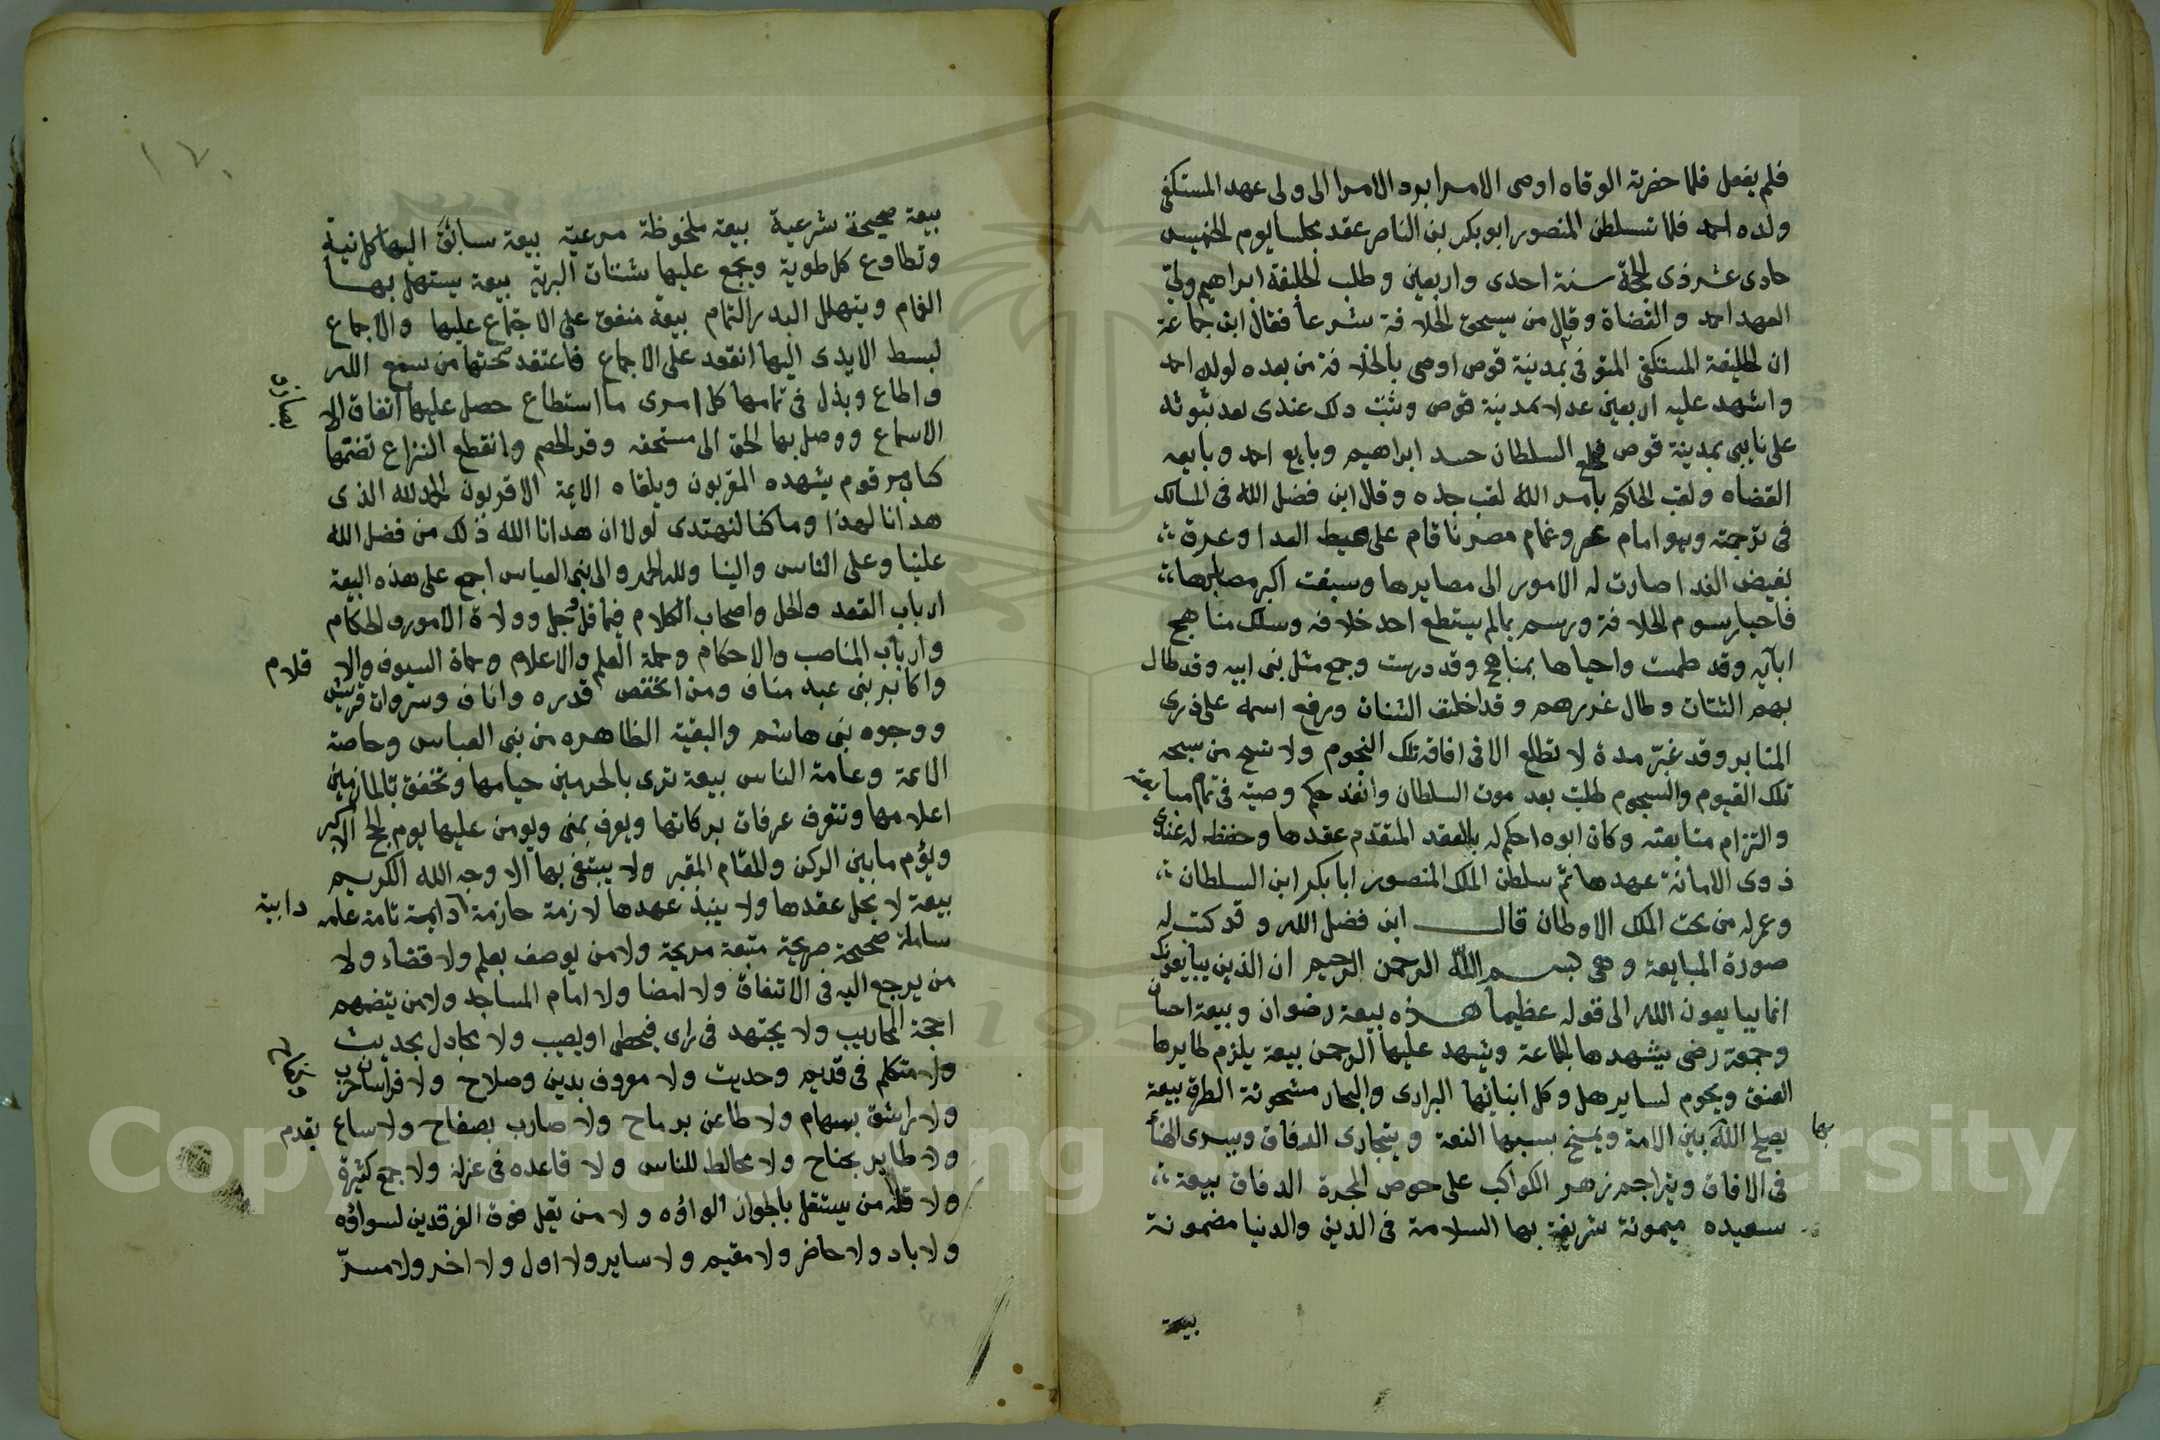 فلم يفعل فلما حضرته الوفاه اوصى الامرا برد الامر الى ولى عهد المستكفى
ولده احمد فلما تسلطن المنصور ابو بكر بن الناصر عقد مجلسا يوم الخميس
حادى عشر ذى الحجة سنة احدى واربعين وطلب الخليفة ابراهيم وولىّ
العهد احمد والقضاة وقال من يستحق الخلافة شرعا فقال ابن جماعة
ان الخليفة المستكفى المتوفى بمدينة قوص اوصى بالخلافة من بعده لولده احمد
واشهد عليه اربعين عدلا بمدينة قوص وثبت ذلك عندى بعد ثبوته
على نايبى بمدينة قوص فخلع السلطان حسد ابراهيم وبايع احمد وبايعه
القضاه ولقب الحاكم بامر الله لقب جده وقال ابن فضل الله فى المسالك
فى ترجمته وهو امام عصرنا وغمام مصرنا قام على غيظ العدا وغرق
بفيض الندا صارت له الامور الى مصايرها وسيقت اكبر مصايرها
فاحيا رسوم الخلافة ورسم بما لم يستطع احد خلافه وسلك مناهج
ابآيه وقد طمست واحياها بمناهج وقد درست وجمع مثل بنى ابيه وقد طال
بهم الشتات وطال غررهم وقد اختلف الشتات ورفع اسمه على ذرى
المنابر وقد غبّر مدة لا تطلع الا فى افاقه تلك النجوم ولا تسح من سحبه
تلك الغيوم والسجوم طلب بعد موت السلطان وانفذ حكم وصيته فى تمام مبايعته
والتزام متابعته وكان ابوه احكم له بالعقد المتقدم عقدها وحفظ له عند
ذوى الامانة عهدها ثم سلطن الملك المنصور ابا بكر ابن السلطان
وعمر له من تحت الملك الاوطان قال ابن فضل الله وقد كتبت له
صورة المبايعة وهى بسم الله الرحمن الرحيم ان الذين يبايعونك
انما يبايعون الله الى قوله عظيما هذه بيعة رضوان وبيعة احسان
وجمعة رضى يشهدها الجماعة ويشهد عليها الرحمن بيعة يلزم طايرها
العنق ويحوم لسايرها وكل ابنائها البرارى والبحار مشحونة الطرق بيعة
يصلح الله بين الامة ويمنح بسببها النعمة ويتجارى الرفاق ويسرى الهنأ
بها
فى الافاق ويتزاحم زهر الكواكب على حوض المجرة الدفاق بيعة
سعيده ميمونة شريفة بها السلامة فى الدين والدنيا مضمونة
بيعة
١٧٠
بيعة صحيحة شرعية بيعة ملحوظة مرعية بيعة سابق اليها كل نية
وتطاوع كل طوية ويجمع عليها شتات البرية بيعة يستهل بها
الغمام ويتهلل البدر التمام بيعة متفق على الاجماع عليها والاجماع
لبسط الايدى اليها انعقد على الاجماع فاعتقد صحتها من سمع الله
واطاع وبذل فى تمامها كل امرى ما استطاع حصل عليها اتفاق الا
بصار و
الاسماع ووصل بها الحق الى مستحقه وقر الخصم وانقطع النزاع تضمنها
كتاب مرقوم يشهده المقربون ويلقاه الايمة الاقربون الحمد لله الذى
هدانا لهذا وما كنا لنهتدى لولا ان هدانا الله ذلك من فضل الله
علينا وعلى الناس والينا ولله الحمد والى بنى العباس اجمع على هذه البيعة
ارباب العقد والحل واصحاب الكلام فيما قل وجل وولاة الامور والحكام
وارباب المناصب والاحكام وحملة العلم والاعلام وحماة السيوف والا
قلام
واكابر بنى عبد مناف ومن انخفض قدره واناف وسروات قريش
ووجوه بنى هاشم والبقية الظاهره من بنى العباس وخاصة
الايمة وعامة الناس بيعة ترى بالحرمين خيامها وتخفق بالمازمين
اعلامها وتتعرف عرفات ببركاتها ويعرف بمنى ويومن عليها يوم الحج الاكبر
ويؤم ما بين الركن والمقام المقبر ولا يبتغى بها الا وجه الله الكريم
بيعة لا يحل عقدها ولا ينبذ عهدها لازمة حازمة دايمة تامة عامه
دايبة
شاملة صحيحة صريحة متبعة مريحة ولا من يوصف بعلم ولا قضاء ولا
من يرجع اليه فى الاتفاق ولا امضا ولا امام المساجد ولا من يتضمهم
اجحة المحاريب ولا يجتهد فى راى فيخطى او يصيب ولا مجادل بحديث
ولا متكلم فى قديم وحديث ولا معروف بدين وصلاح ولا فرسان حرب
وكفاح
ولا راشق بسهام ولا طاعن برماح ولا ضارب بصفاح ولا ساع
بقدم
ولا طاير بجناح ولا مخالط للناس ولا قاعده فى عزلة ولا جمع كثيرة
ولا قلة من يستقل بالجوزا لواؤه ولا من يقل فوق الفرقدين لسواؤه
ولا باد ولا حاضر ولا مقيم ولا ساير ولا اول ولا اخر ولا مسرّ
Copyright © King University
195